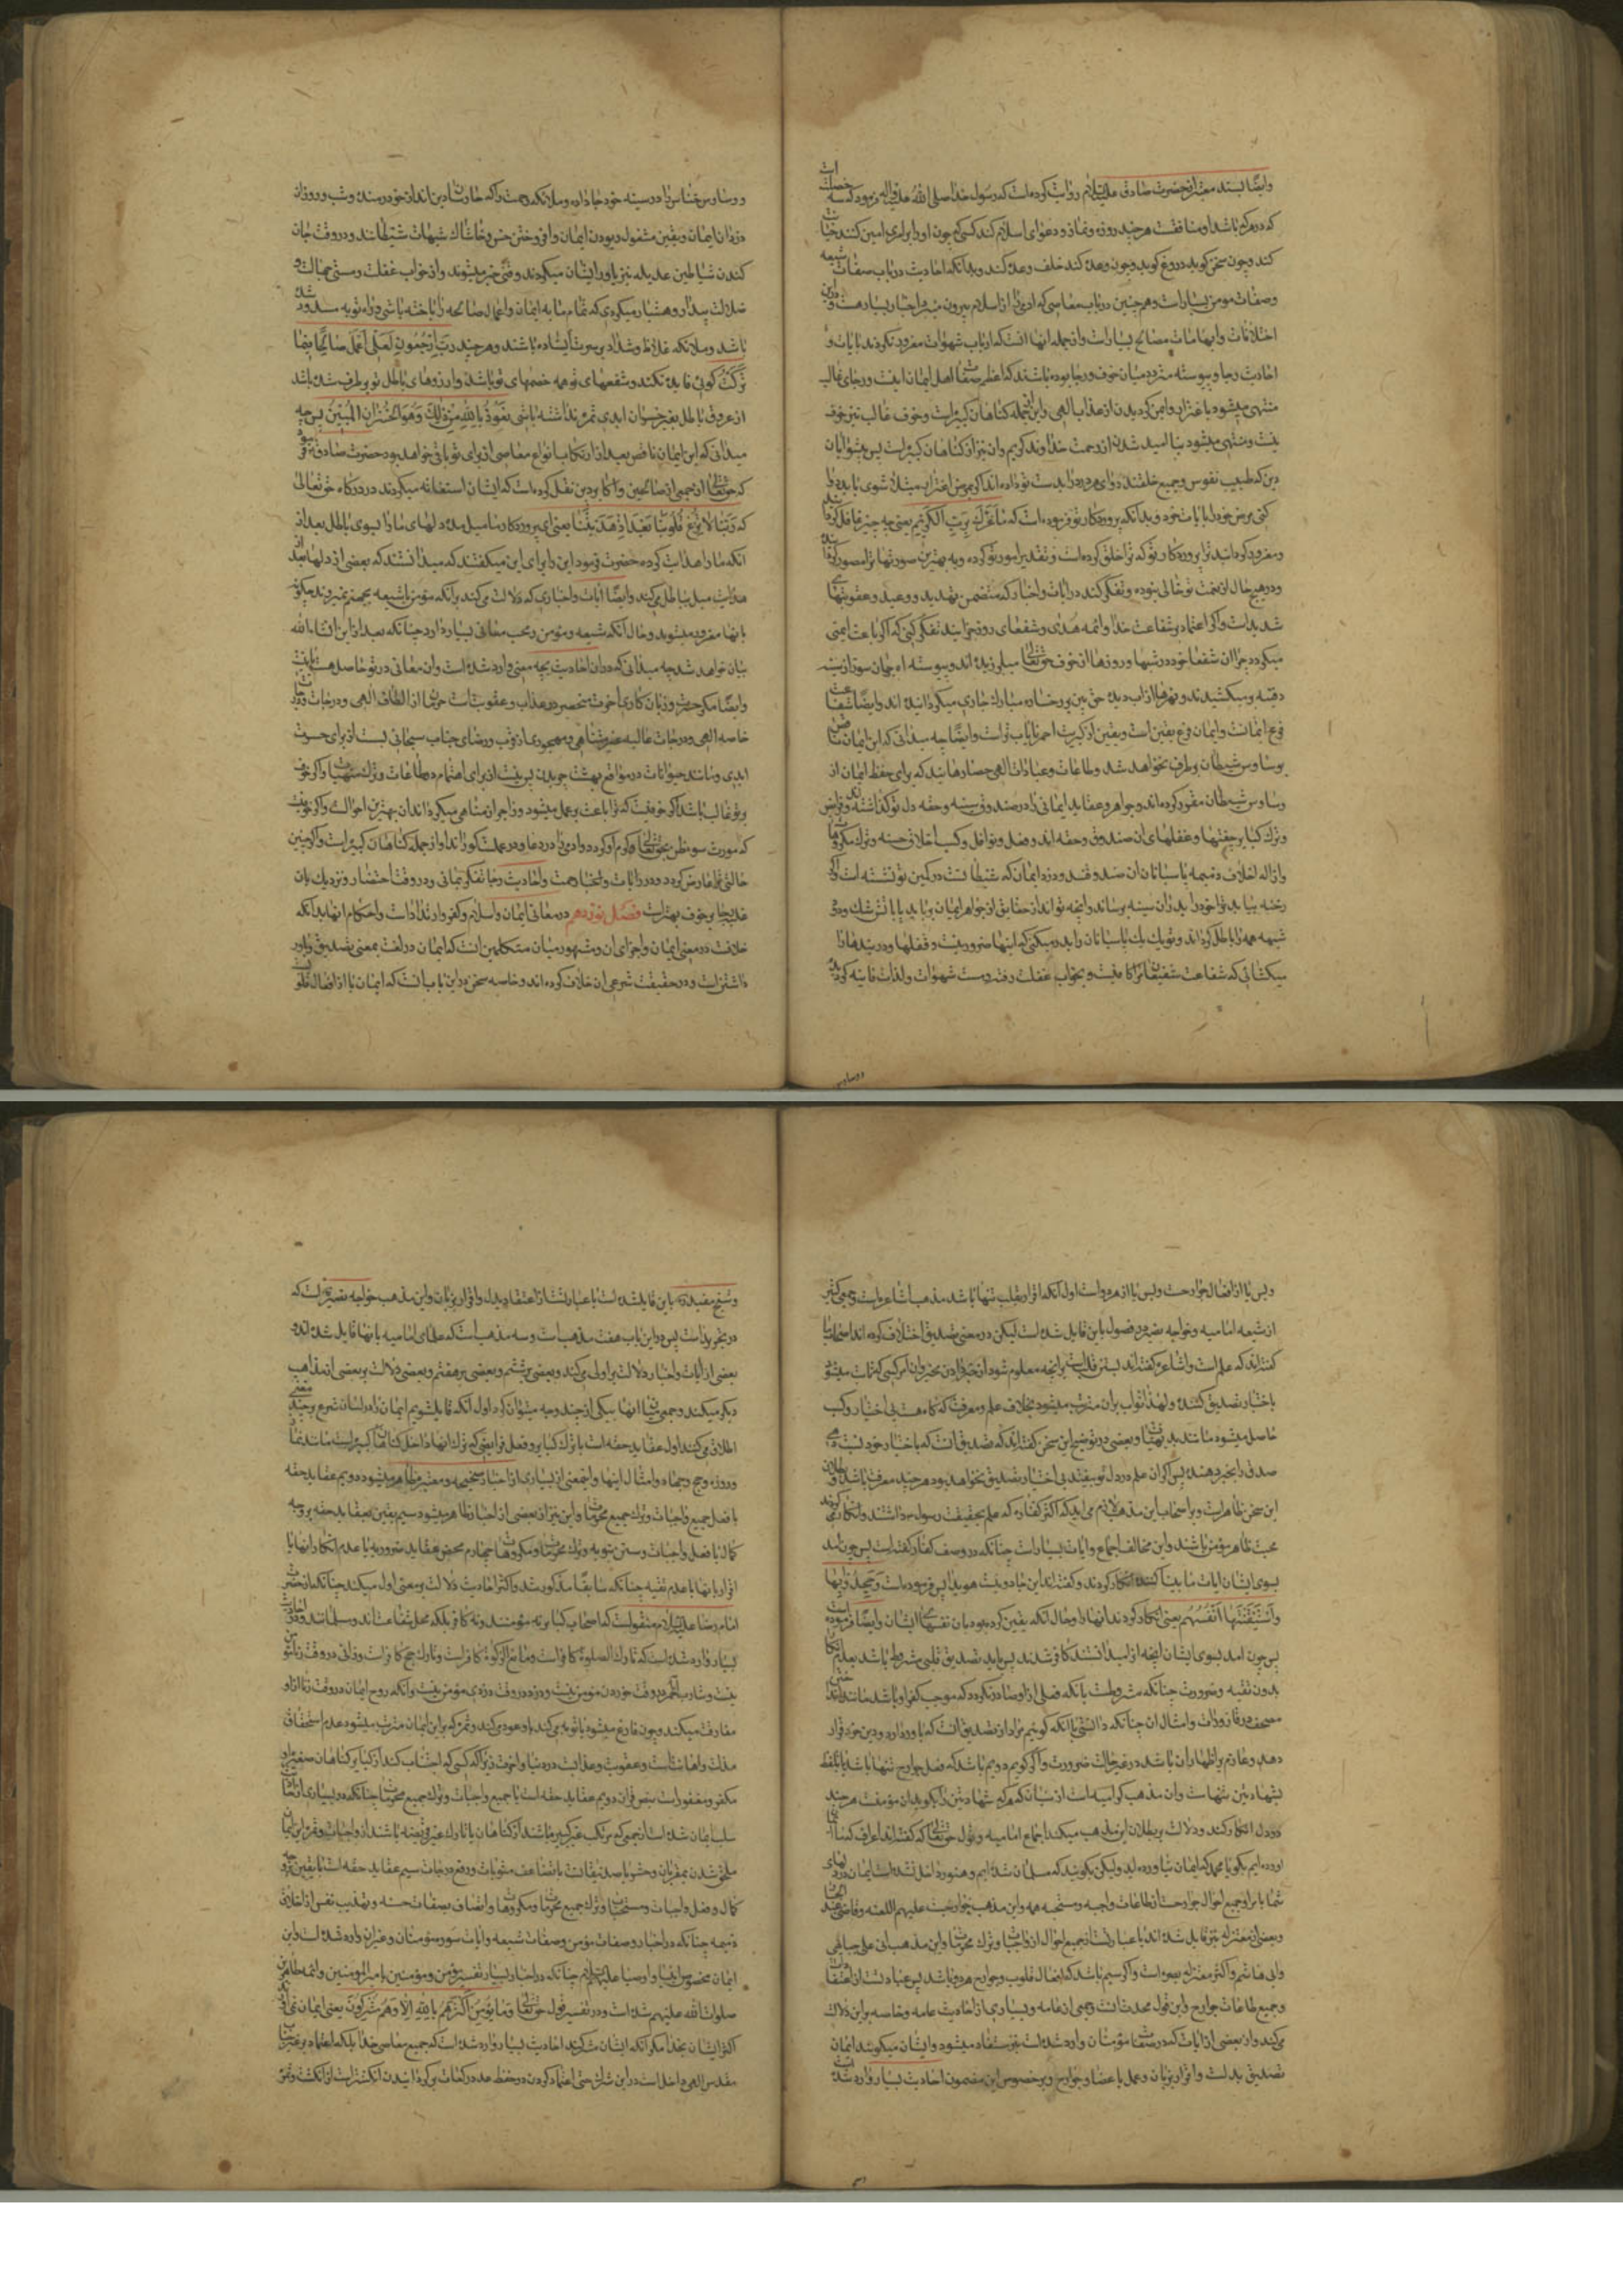 وایضا بسند معتبر از حضرت صادق علیه السلام روایت کرده است که رسول خدا صلی الله علیه واله فرمود که سه خصلت است
که در هر که باشد او منافقست هر چند روزه و نماز و دعوای اسلام کند کسی که چون او را بر امری امین کنند خیانت
کند و چون سخن کوید دروغ کوید و چون وعده کند خلف وعده کند و بدانکه احادیث در باب صفات شیعه
وصفات مومن بسیار است و هم چنین در باب معاصی که ادمی را از اسلام بیرون میبرد اخبار بسیار هست و در این
اختلافات و ابهامات مصالح بسیار است و از جمله انها انست که ارباب شهوات مغرور نکردند بایات و
احادیث رجا و پیوسته متردد میان خوف و رجا بوده باشند که اعظم صفات اهل ایمان اینست و رجای غالب
منتهی میشود باغترار و ایمن کردیدن از عذاب الهی و این از جمله کناهان کبیره است و خوف غالب نیز خوب
نیست و منتهی میشود بنا امید شدن از رحمت خداوند کریم و ان نیز از کناهان کبیره است پس پیشوایان
دین که طبیب نفوس و جمیع خلقند دوای هر درد را بدست تو داده اند اکر بمرض اغترار مبتلا شوی باید دوا
کنی مرض خود را بایات خود و بدانکه پروردکار تو فرموده است که ما غرک بربک الکریم یعنی چه چیز غافل کرد
و مغرور کردانید ترا بپروردکار تو که ترا خلق کرده است و تقدیر امور تو کرده و به بهترین صورتها ترا مصور کرده
و در هیچ حال از نعمت تو خالی نبوده و تفکر کند در ایات و اخبار که متضمن تهدید و وعید و عقوبتهای
شدید است و اکر اعتماد بر شفاعت خدا و ائمه هدی و شفعای روز جزا چند تفکر کنی که اکر باعث ایمنی
میکردد چرا ان شفعا خود در شبها و روزها از خوف حق تعالی میلرزیده اند و پیوسته اه جان سوز از سینه
فرع ایمانست و ایمان فرع یقین است و یقین از کبریت احمر نایاب تر است و ایضا چه میدانی که این ایمان تا مرض
بوساوس شیطان برطرف نخواهد شد و طاعات و عبادات الهی حصارهایند که برای حفظ ایمان از
وساوس شیطان مقرر کرده اند و جواهر و عقاید ایمانی را در صندوق سینه و حقه دل تو کذاشته اند و فرایض
و ترک کبایر جفتها و قفلهای ان صندوق و حقه اند و فعل نوافل و کسب اخلاق حسنه و ترک مکروهات
و ازاله اخلاق ذمیمه پاسبانان ان صندوقند و دزد ایمان که شیطانست در کمین تو نشسته است که اکر
رخنه بیابد تو خود را بدزدان سینه برساند و انچه تواند از حقایق از جواهر ایمان برباید یا باتش شک و ریب
شبهه همه را باطل کرداند و تو یک یک پاسبانان را بدر میکنی که اینها ضرور نیست و قفلها و دربندها را
میکشائی که شفاعت شفیعان ترا کافیست و بخواب غفلت رفته و مست شهوات و لذات فانیه کردیده
و وساوس خناس را در سینه خود جا داده و ملائکه رحمت را که حارسان دین اند از خود رمیده و شب و روز ان
دزدان ایمان و یقین مشغول ربودن ایمان و افروختن خس و خاشاک شبهات شیطانند و در وقت جان
کندن شیاطین عدیله نیز یاور ایشان میکردند و وقتی خبر میشوند و از خواب غفلت و مستی جهالت و
ضلالت بیدار و هشیار میکردی که تمام مایه ایمان و اعمال صالحه را باخته باشی و راه توبه مسدود شده
باشد و ملائکه غلاظ و شداد بر سرت ایستاده باشند و هر چند رب ارجعون لعلی اعمل صالحا فیما
ترکت کوئی فایده نکند و شفیعهای تو همه خصمهای تو باشند و ارزوهای باطل تو برطرف شده باشد
از عروق باطل بغیر خسران ابدی ثمره نداشته باشی نعوذ بالله من ذلک و هو الخسران المبین پس چه
میدانی که این ایمان ناقص بعد از ارتکاب انواع معاصی از برای تو باقی خواهد بود حضرت صادق فرمود
که حق تعالی از جمعی از صالحین و اکابر دین نقل کرده است که ایشان استغاثه میکردند در درکاه حق تعالی
که ربنا لا تزغ قلوبنا بعد اذ هدیتنا یعنی ای پروردکار ما میل مده دلهای ما را بسوی باطل بعد از
انکه ما را هدایت کردی حضرت فرمود این را برای این میکفتند که میدانستند که بعضی از دلها بعد از
هدایت میل بباطل میکند و ایضا ایات و اخباری که دلالت می کند بر انکه مؤمن یا شیعه بجهنم نمیروند چکونه
بانها مغرور میشوید و حال آنکه شیعه و مؤمن و محب معانی بسیار دارد چنانکه بعد از این انشاء الله
بیان خواهد شد چه میدانی که در ان احادیث بچه معنی وارد شده است و ان معانی در تو حاصل هست یا نیست
وایضا مکر حسرت و زیان کاری اخرت منحصر در عذاب و عقوبت است حرمان از الطاف الهی و درجات
خاصه الهی و درجات عالیه غیر متناهی و مهجوری از قرب و رضای جناب سبحانی بست از برای حسرت
ابدی و مانند حیوانات در مواقع بهشت چریدن
بر تو غالب باشد اکر خوفیست که ترا باعث بر عمل میشود و زاجر از مناهی میکردد ان بهترین احوالست و اکر خوفیست
که مورث سوء ظن بحق تعالی
حالتی ترا عارض کردد در ایات و اخبار رحمت و احادیث رجا تفکر نمائی و در وقت احتضار و نزدیک بان
غلبه رجا بر خوف بهتر است فصل نوزدهم در معانی ایمان و اسلام و کفر و ارتداد است و احکام انها بدانکه
خلافست در معنی ایمان و اجزای ان و مشهور میان متکلمین انست که ایمان در لغت بمعنی تصدیق و باور
داشتن است و در حقیقت شرعی ان خلاف کرده اند و خلاصه سخن در این باب انست که ایمان یا از افعال قلوبست
و بس یا از افعال جوارحست و بس یا از هر دو است اول انکه اقرار بقلب تنها باشد مذهب اشاعره است و جمعی کثیر
از شیعه امامیه و خواجه نصیر در فصول باین قایل شده است لیکن در معنی تصدیق اختلاف کرده اند اصحاب ما
کفته اند که علم است و اشاعره کفته اند
باختیار تصدیق کننده و لهذا ثواب بر ان مترتب میشود بخلاف علم و معرفت که کاه هست بی اختیار و کسب
حاصل میشود مانند بدیهیات و بعضی در توضیح این سخن کفته اند که تصدیق انست که باختیار خود نسبت دهی
صدق را بمخبر دهنده پس اکر ان علم در دل تو بیفتد بی اختیار تصدیق نخواهد بود هر چند معرفت باشد و بطلان
این سخن ظاهر است و بر اصحاب این مذهب لازم می اید که اکثر کفار که علم بحقیقت رسول داشتند و انکار می کردند
بحسب ظاهر مؤمن باشند و این مخالف اجماع و ایات بسیار است چنانکه در وصف کفار کفته است پس چون امد
بسوی ایشان ایات ما بینا کننده انکار کردند و کفته اند این جادوئیست هویدا پس فرموده است وجحدوا بها
واستیقنتها انفسهم یعنی انکار کردند انها را و حال انکه یقین کرده بود بان نفسهای ایشان و ایضا فرموده است
پس چون امد بسوی ایشان انچه را میدانستند کافر شدند پس باید تصدیق قلبی مشروط باشد بعدم انکار
بدون تقیه و ضرورت چنانکه مشروطست بانکه فعلی از او صادر نکردد که موجب کفر او باشد مانند انداختن
مصحف در قاذورات و امثال ان چنانکه دانستی یا انکه کوئیم مراد از تصدیق انست که باور دارد و دین خود قرار
دهد و عازم بر اظهار ان باشد در غیر حالت ضرورت و اکر کویم دویم باشد که فعل جوارح تنها باشد یا بتلفظ
بشهادتین تنهاست و ان مذهب کرامیه است از سنیان که هر که شهادتین را بکوید ان مؤمنست هر چند
در دل انکار کند و دلالت بر بطلان این مذهب میکند اجماع امامیه و قول حق تعالی که کفته اند اعراب که ما ایمان
اورده ایم بکو یا محمد که ایمان نیاورده اید ولیکن بکوئید که مسلمان شده ایم و هنوز داخل نشده است ایمان در دلهای
شما یا مراد جمیع احوال جوارحست از طاعات واجبه و مستحبه همه و این مذهب خوارجست علیهم اللعنه و قاضی
و بعضی از معتزله نیز قایل شده اند یا عبارتست از جمیع احوال از واجبات و ترک محرمات و این مذهب ابی علی جبائی
و ابی هاشم و اکثر معتزله بصره است و اکر سیم باشد که افعال قلوب و جوارح هر دو باشد پس عبارتست از اعتقادات
و جمیع طاعات جوارح و این قول محدثانست و جمعی از عامه و بسیاری از احادیث عامه و خاصه بر این دلالت
می کند و از بعضی از ایات که در صفات مؤمنان وارد شده است نیز مستفاد میشود و ایشان میکویند ایمان
تصدیق بدلست و اقرار بزبان و عمل باعضا و جوارح و بر خصوص این مضمون احادیث بسیار وارد شده است
و شیخ مفید باین قایل شده است یا عبارتست از اعتقاد بدل و اقرار بزبان و این مذهب خواجه نصیر است که
در تجرید است پس در این باب هفت مذهب است و سه مذهب است که علمای امامیه بانها قایل شده اند و
بعضی از ایات و اخبار دلالت بر اولی می کند و بعضی بر ششم و بعضی بر هفتم و بعضی دلالت بر بعضی از مذاهب
دیکر میکند و جمع میان انها بیکی از چند وجه میتوان کرد اول انکه قایل شویم ایمان را در لسان شرع بر چند معنی
اطلاق می کنند اول عقاید حقه است با ترک کبایر و فعل فرایضی که ترک انها داخل کناهان کبیره است مانند نماز
و روزه و حج و جهاد و امثال اینها و این معنی از بسیاری از اخبار صحیحه و معتبره ظاهر میشود دویم عقاید حقه
با فعل جمیع واجبات و ترک جمیع محرمات و این نیز از بعضی از اخبار ظاهر میشود سیم یقین بعقاید حقه بر وجه
کمال با فعل واجبات و سنن و ترک محرمات و مکروهات چهارم محض عقاید ضروریه با عدم انکار انها یا
اقرار بانها با عدم تقیه چنانکه سابقا مذکور شد و اکثر احادیث دلالت بر معنی اول میکند چنانکه از حضرت
امام رضا علیه السلام منقولست که اصحاب کبایر نه مؤمنند و نه کافر بلکه محل شفاعت اند و مسلمانند و در احادیث
بسیار وارد شده است که تارک الصلوة کافر است و مانع الزکوة کافر است و تارک حج کافر است و زانی در وقت زنا مؤمن
نیست و شارب الخمر در وقت خوردن مؤمن نیست و دزد در وقت دزدی مؤمن نیست و آنکه روح ایمان در وقت زنا از او
مفارقت میکند و چون فارغ میشود یا توبه می کند باو عود می کند و ثمره که بر این ایمان مترتب میشود عدم استحقاق
مذلت و اهانتست و عقوبت و عذابست در دنیا و اخرت زیرا که کسی که اجتناب کند از کبایر کناهان صغیره او
مکفر و مغفور است بنص قران دویم عقاید حقه است با جمیع واجبات و ترک جمیع محرمات چنانکه در بسیاری از اخبار
سلب ایمان شده است از جمعی که مرتکب غیر کبیره باشند از کناهان یا تارک غیر فریضه باشند از واجبات و ثمره این ایمان
ملحق شدن بمقربان و حشر با صدیقانست با تضاعف مثوبات و رفع درجات سیم عقاید حقه است با یقین بر وجه
کمال و فعل واجبات و مستحبات و ترک جمیع محرمات و مکروهات و اتصاف بصفات حسنه و تهذیب نفس از اخلاق
ذمیمه چنانکه در اخبار و صفات مؤمن و صفات شیعه و ایات سور مؤمنان و غیر ان وارد شده است و این
ایمان مخصوص انبیا و اوصیا علیهم السلام چنانکه در اخبار بسیار تفسیر مؤمن و مؤمنین بامیر المؤمنین و ائمه طاهرین
صلوات الله علیهم شده است و در تفسیر قول حق تعالی وما یؤمن اکثرهم بالله الا وهم مشرکون یعنی ایمان نمی اورند
اکثر ایشان بخدا مکر آنکه ایشان مشرکند احادیث بسیار وارد شده است که جمیع معاصی خدا بلکه اعتماد بر غیر جناب
مقدس الهی داخلست در این شرک حتی اعتماد کردن در حفظ عدد رکعات بر کردانیدن انکشتر است از انکشت